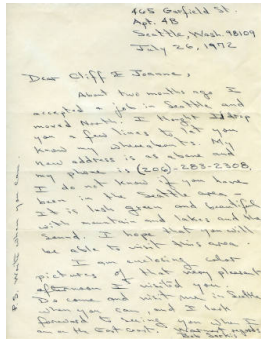 465 Garfield St.
Apt. 4B
Seattle, Wash. 98109
July 26, 1972
Dear Cliff & Joanne,
About two months ago I
accepted a job in Seattle and
moved North. I thought I'd drop
you a few lines to let you
know my whereabouts. My
new address is as above and
my phone is (206)-283-2308.
I do not know if you have
been in the Seattle area.
It is lush green and beautiful
with mountain and lakes and the
Sound. I hope that you will
be able to visit this area.
I am enclosing color
pictures of that very pleasant
afternoon I visited you.
Do come and visit me in Seattle
when you can, and I look
forward to seeing you when I
am on the East Coast. Warmest regards,
Bob
P.S. Write when you can.